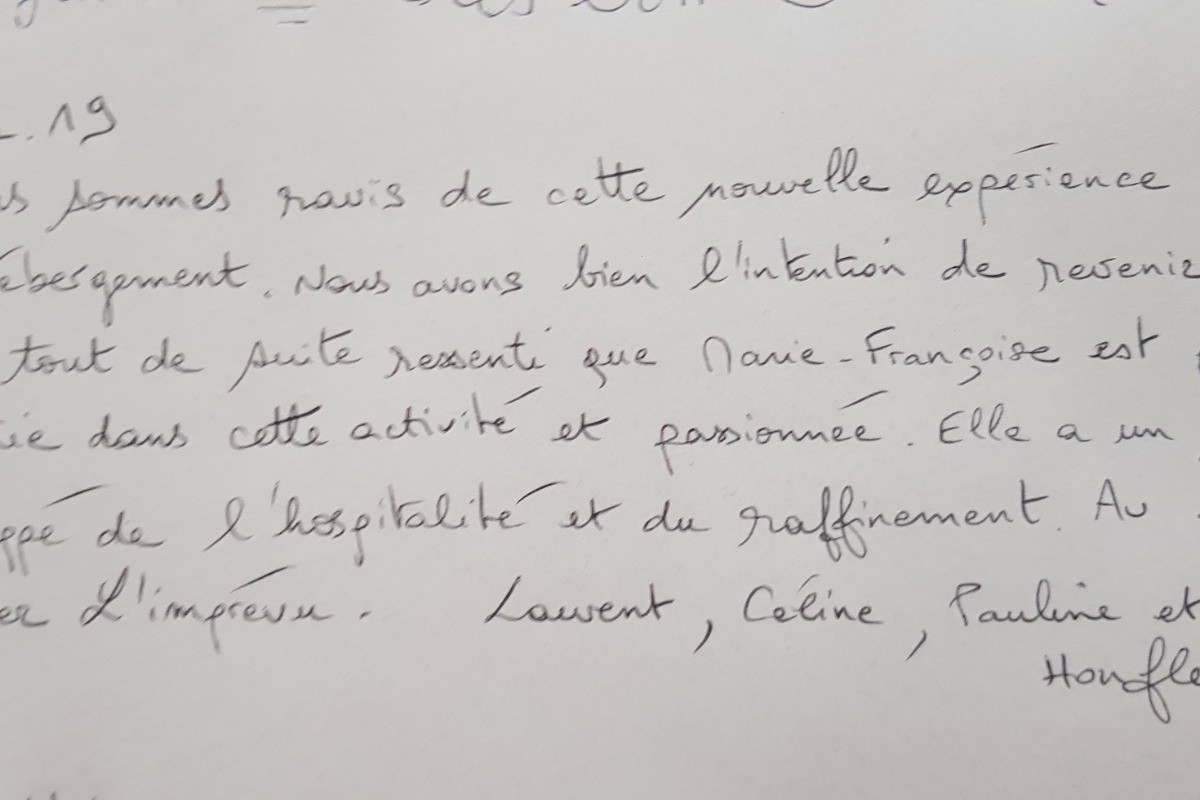 . 19
s sommes ravis de cette nouvelle expérience
ébergement. Nous avons bien l'intention de revenir
tout de suite ressenti que Marie-Françoise est
ie dans cette activité et passionnée. Elle a un
ppé de l'hospitalité et du raffinement. Au
er L'imprévu. Laurent, Céline, Pauline et
Honfle